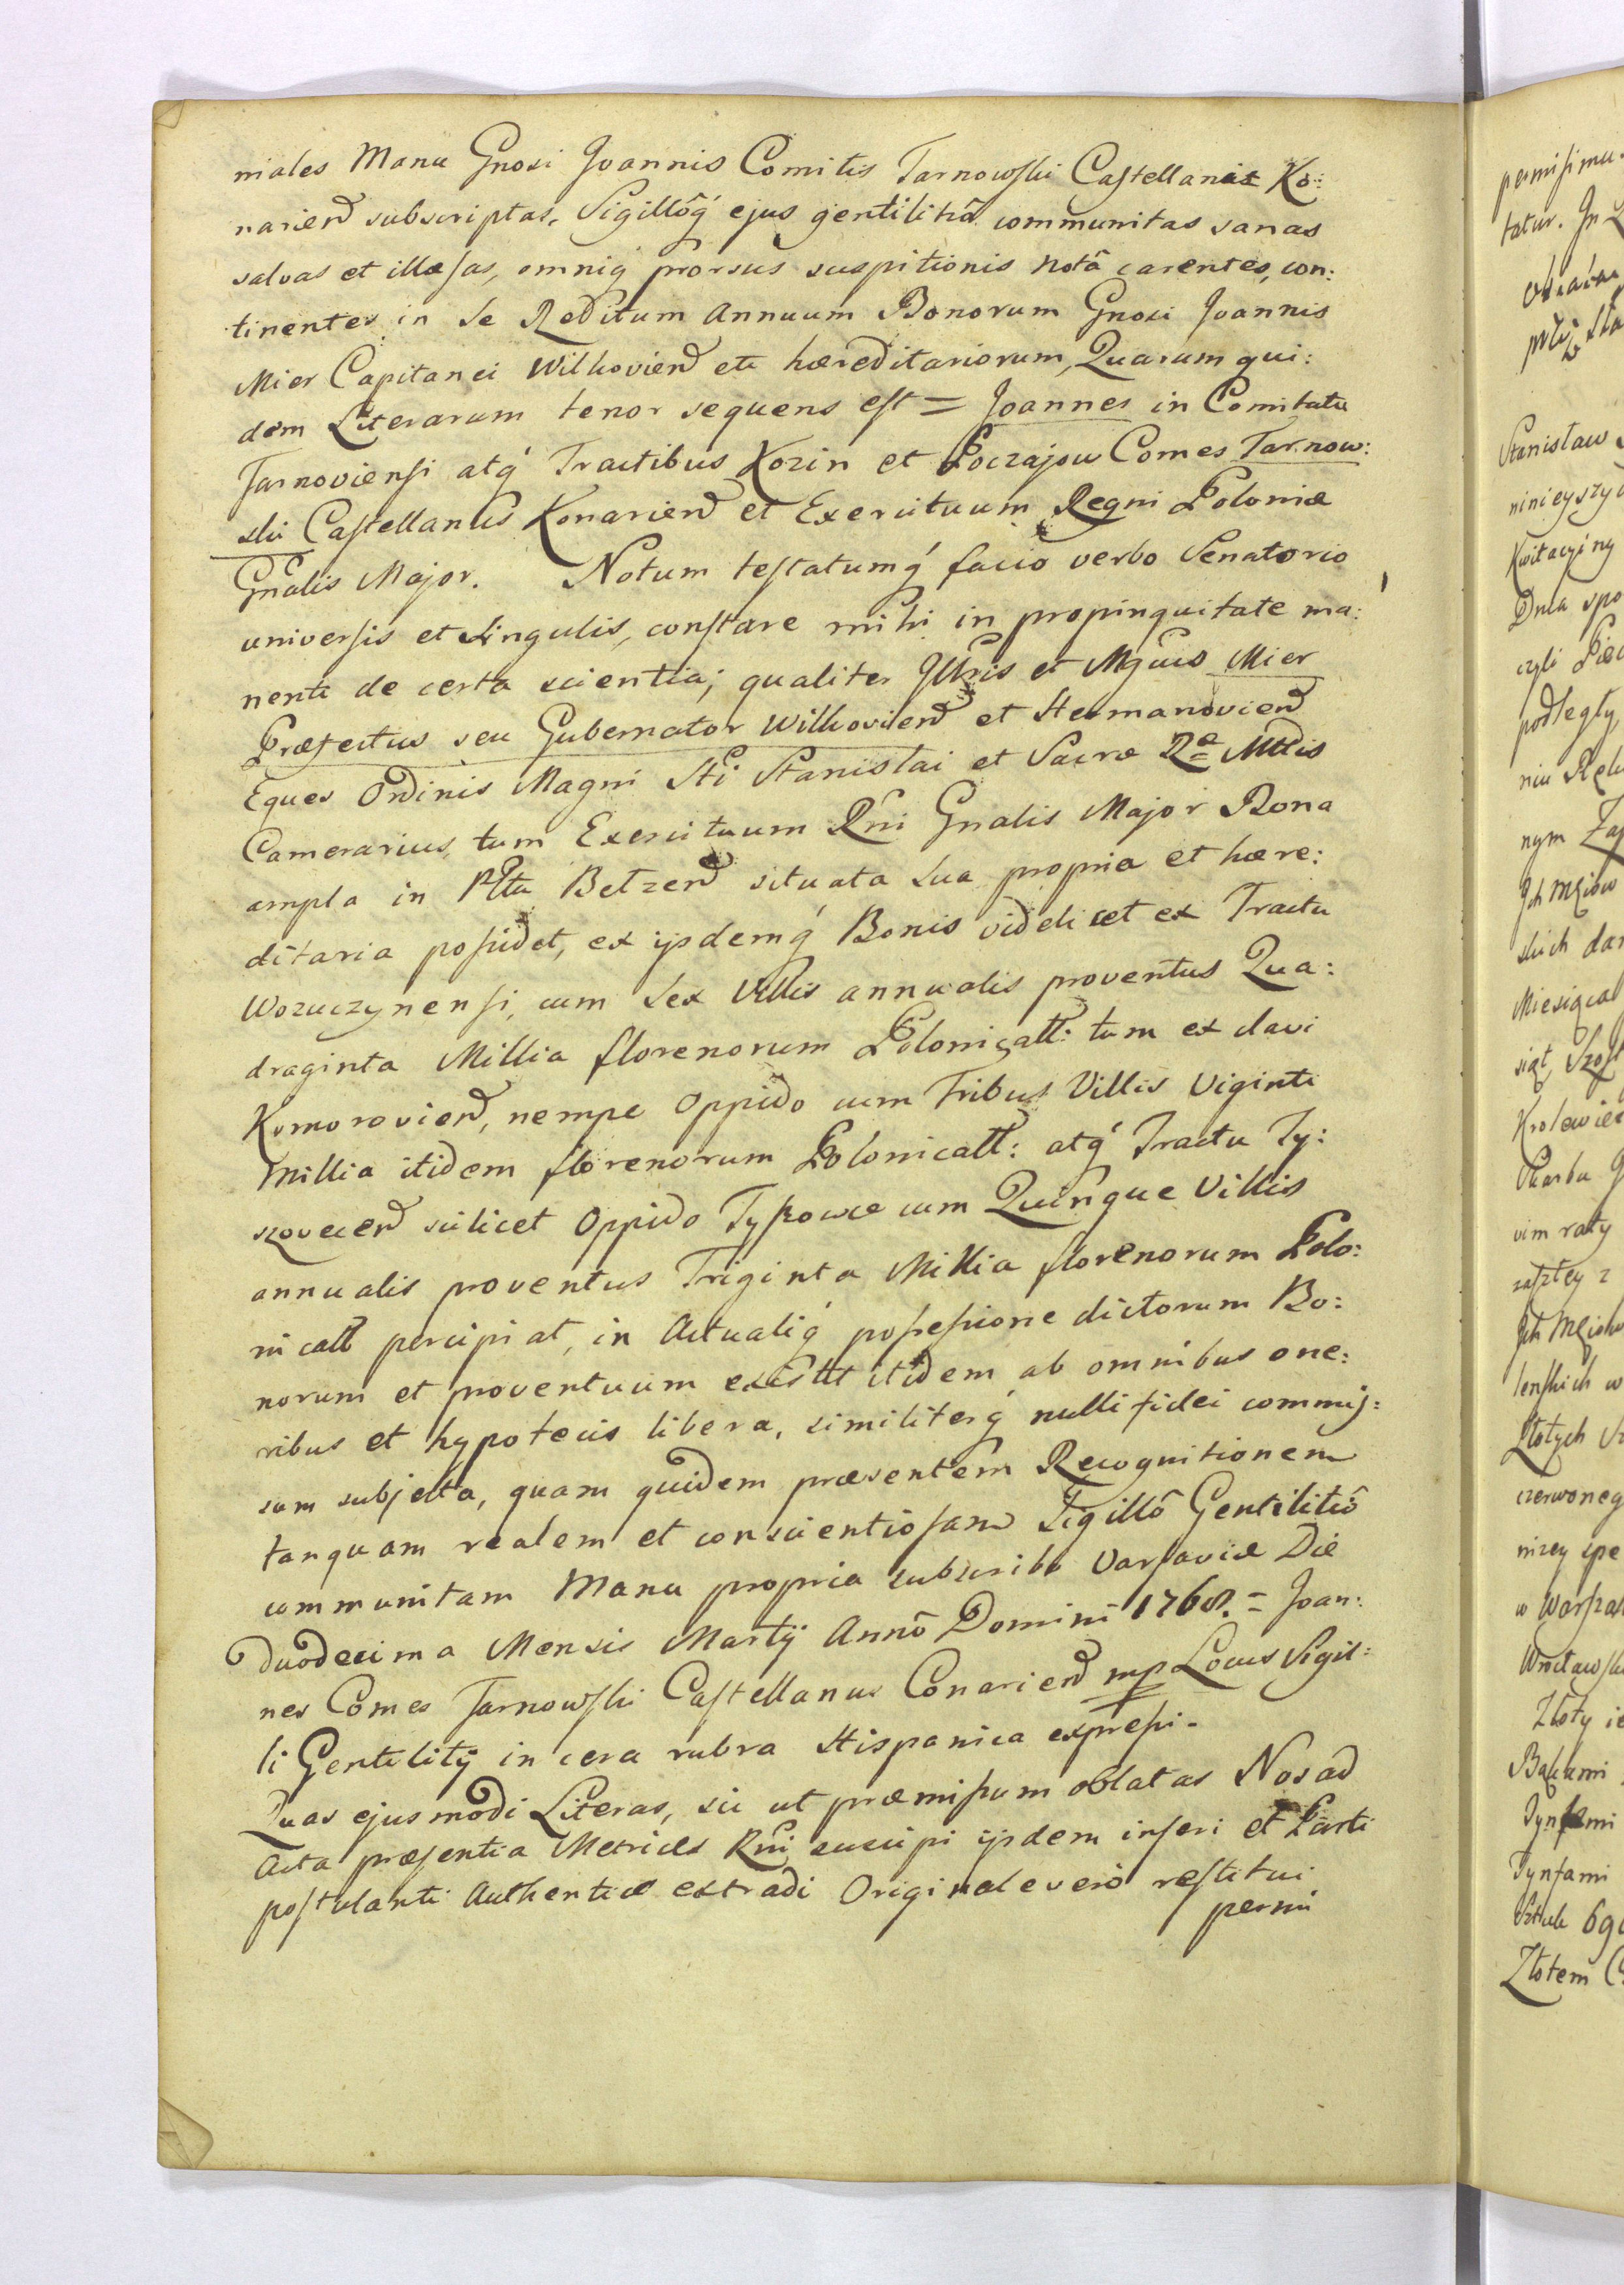 niales Manu Gnosi Joannis Comitis Tarnowski Castellani Ko:
nariend subscriptas, Sigilloq́ ejus gentilitiô communitas sanas
salvas et illæsas, omniq́ prorsus suspitionis notâ carentes, con:
tinentes in Se Reditum Annuum Bonorum Gnosi Joannis
Mier Capitanei Wilkoviend etc hæreditariorum, Quarum qui:
dem Literarum tenor sequens est = Joannes in Comitatu
Tarnoviensi atq́ Tractibus Kozin et Poczajow Comes Tarnow:
ski Castellanus Konariend et Exercituum Regni Poloniæ
Gnalis Major. Notum testatumq́ facio verbo Senatorio
universis et Singulis, constare mihi in propinquitate ma:
nenti de certa scientia; qualiter Illris et Mgcus Mier
Præfectus seu Gubernator Wilkoviend et Hermanoviend
Eques Ordinis Magni Sti Stanislai et Sacræ Ræ Mttis
Camerarius, tum Exercituum Rni Gnalis Major Bona
ampla in Pttu Betzend situata Sua propria et hære:
ditaria possidet, ex ijsdemq́ Bonis videlicet ex Tractu
Wozuczynensi, cum Sex Villis annualis proventus Qua:
draginta Millia florenorum Polonicatt: tum ex clavi
Komoroviend, nempe Oppido cum Tribus Villis Viginti
Millia itidem florenorum Polonicatt: atq́ Tractu Ty:
szoveciend scilicet Oppido Tyszowce cum Quinque Villis
annualis proventus Triginta Millia florenorum Polo:
nicatt percipiat, in Actualiq́ possessione dictorum Bo:
norum et proventuum existit itidem ab omnibus one:
ribus et hypotecis libera, similiterq́ nulli fidei commis:
sum subjecta, quam quidem præsentem Recognitionem
tanquam realem et conscientiosam Sigillô Gentilitiô
communitam Manu propria subscribo Varsaviæ Die
duodecima Mensis Martij Annô Domini 1768. = Joan:
nes Comes Tarnowski Castellanus Conariend mp Locus Sigil:
li Gentilitij in cera rubra Hispanica expressi -
Quas ejusmodi Literas, sic ut præmissum oblatas Nos ad
Acta præsentia Metrices Rni suscipi ijsdem inseri et Parti
postulanti Authentice extradi Originale verò restitui
permi